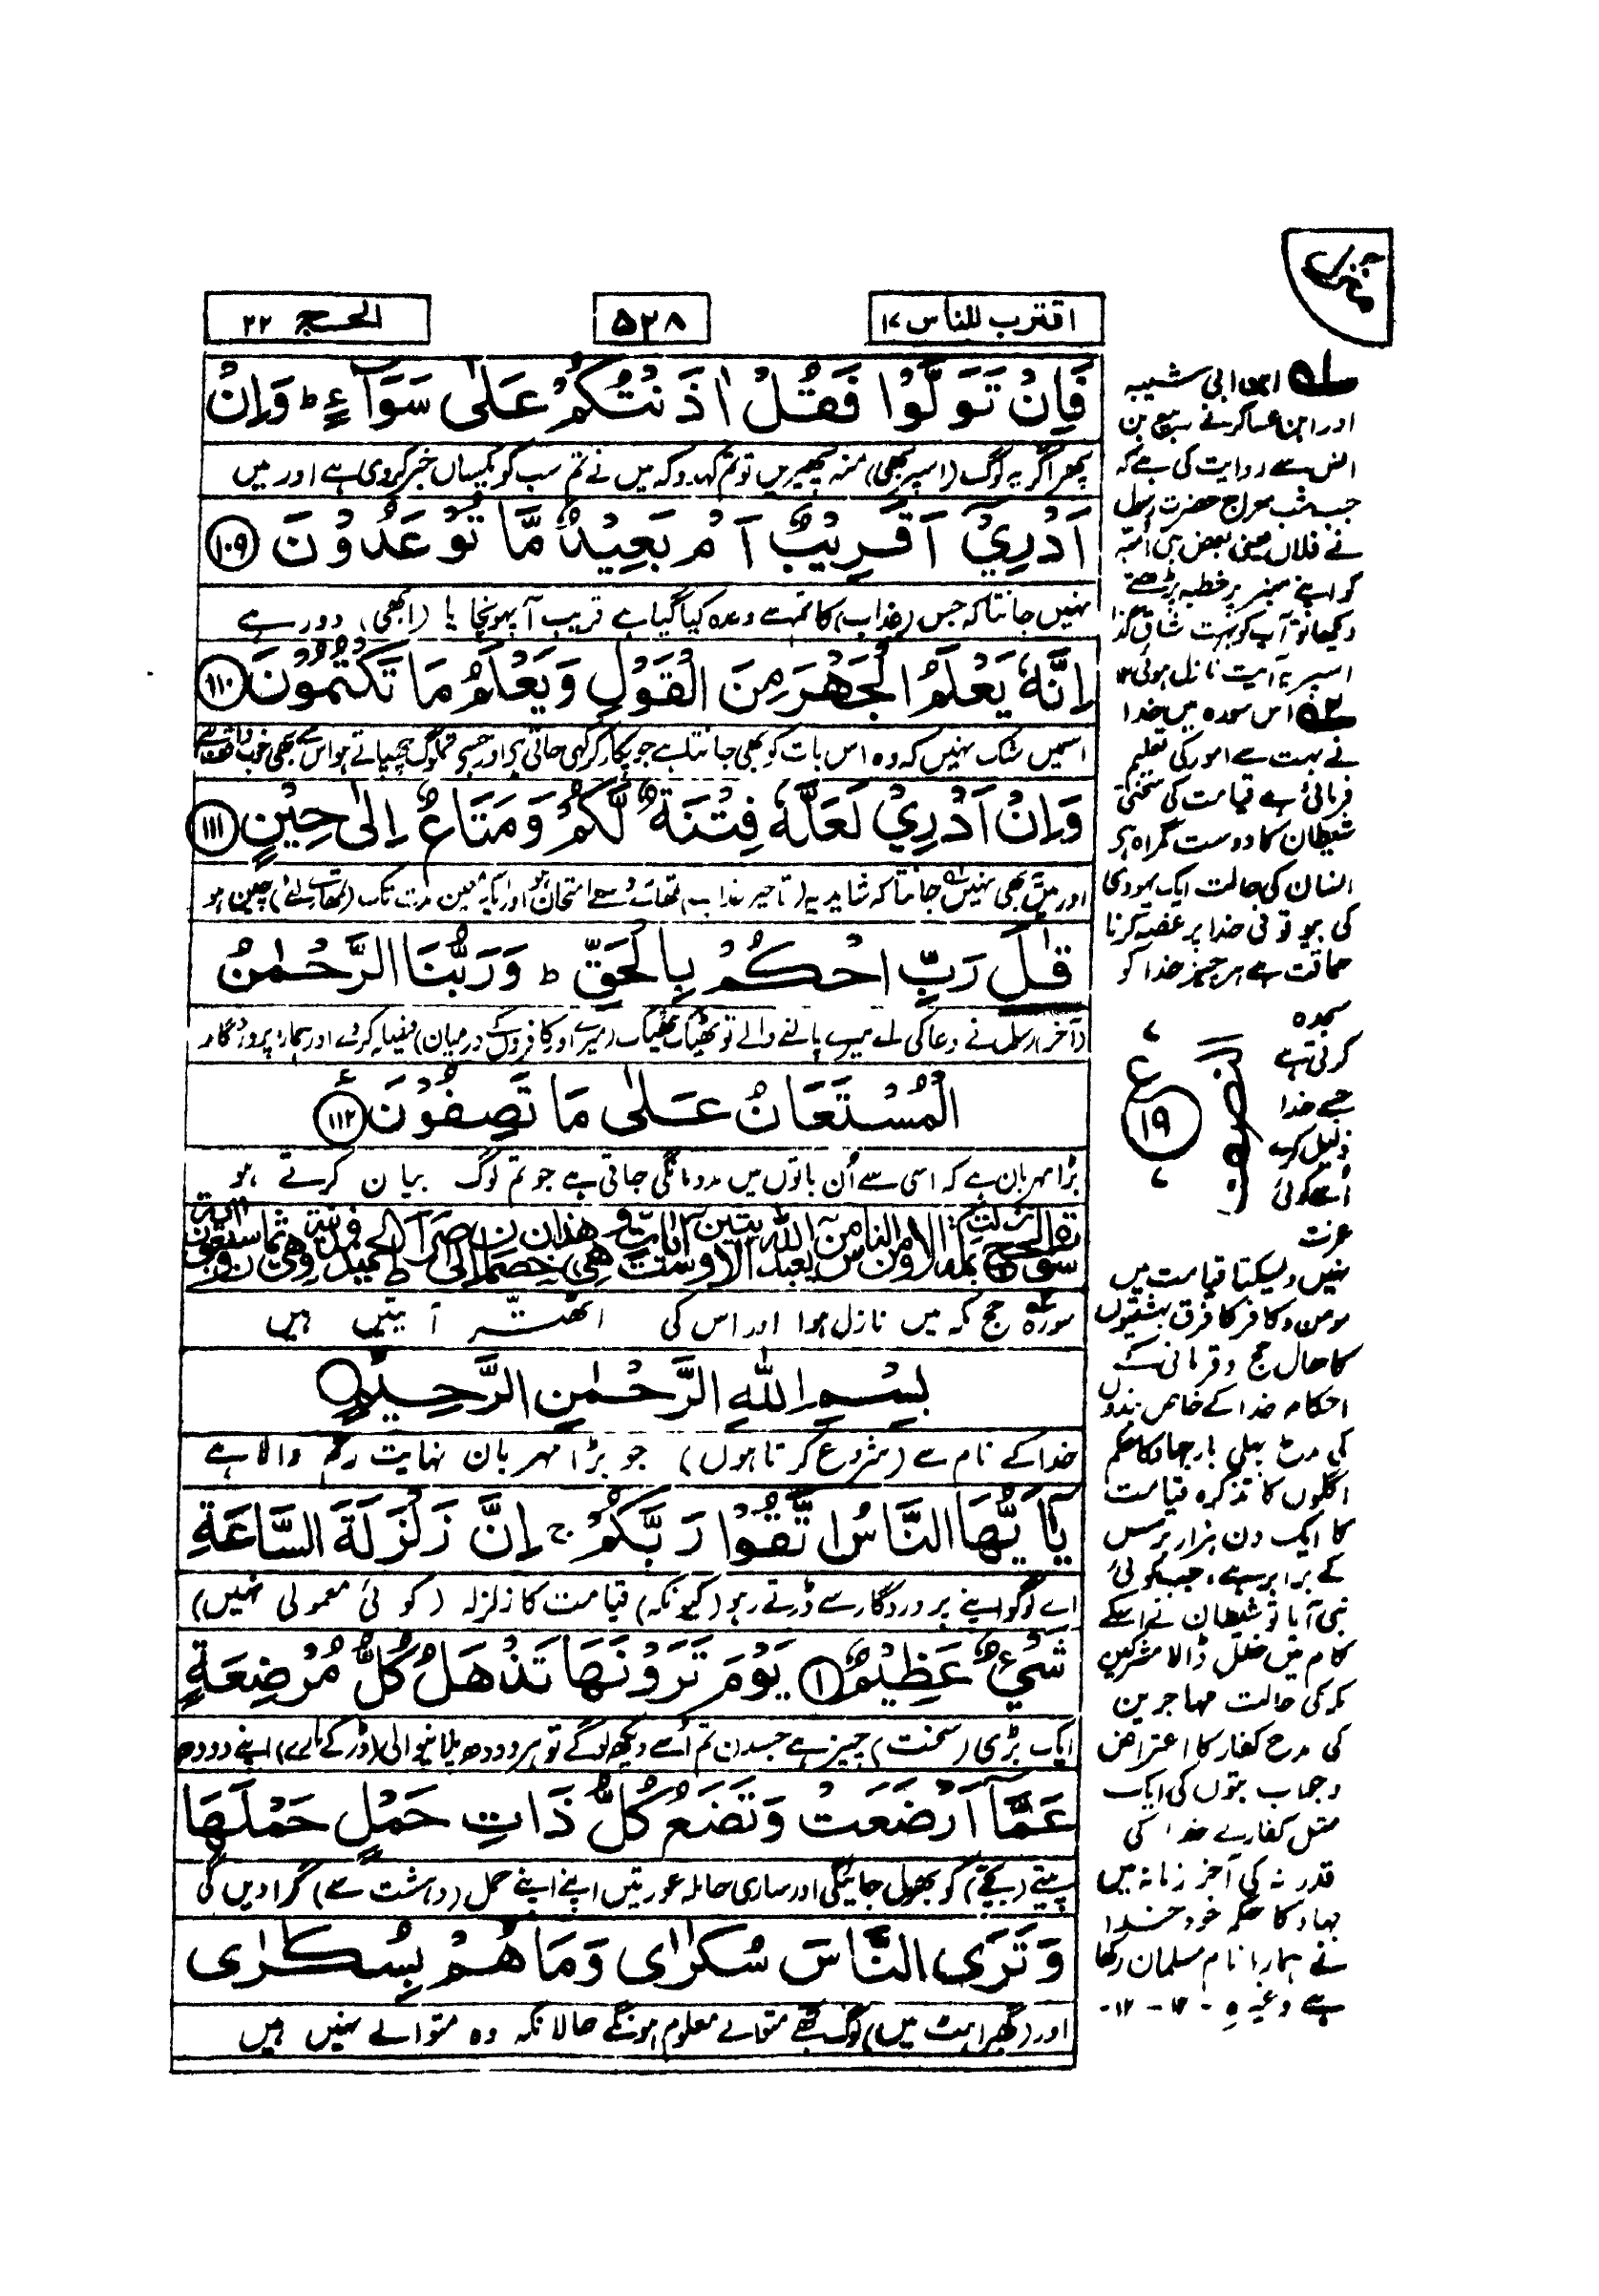 منزل
اقترب للناس ۱۷
۵۲۸
الحج ۲۲
فَاِنْ تَوَلَّوْا فَقُلْ اٰذَنْتُكُمْ عَلٰی سَوَآءٍ ط وَاِنْ
پھر اگر یہ لوگ (اسپر بھی) منہ پھیریں تو تم کہدو کہ میں نے تم سب کو یکساں خبر کردی ہے اور میں
اَدْرِيْۤ اَقَرِيْبٌ اَمْ بَعِيْدٌ مَّا تُوْعَدُوْنَ ۱۰۹
نہیں جانتا کہ جس (عذاب) کا تم سے وعدہ کیا گیا ہے قریب آ پہونچا یا (ابھی) دور ہے
اِنَّهٗ يَعْلَمُ الْجَهْرَ مِنَ الْقَوْلِ وَيَعْلَمُ مَا تَكْتُمُوْنَ ۱۱۰
اسمیں شک نہیں کہ وہ اس بات کو بھی جانتا ہے جو پکار کر کہی جاتی ہے اور جسے تم لوگ چھپاتے ہو اس سے بھی خوب
وَاِنْ اَدْرِيْ لَعَلَّهٗ فِتْنَةٌ لَّكُمْ وَمَتَاعٌ اِلٰی حِيْنٍ ۱۱۱
اور میں بھی نہیں جانتا کہ شاید یہ (تاخیر عذاب) تمھارے واسطے امتحان ہو اور ایک معین مدت تک (تمھارے لئے) چین ہو
قٰلَ رَبِّ احْكُمْ بِالْحَقِّ ط وَرَبُّنَا الرَّحْمٰنُ
(آخر) رسول نے دعا کی اے میرے پالنے والے تو ٹھیک ٹھیک (میرے اور کافروں کے درمیان) فیصلہ کردے اور ہمارا پروردگار
الْمُسْتَعَانُ عَلٰی مَا تَصِفُوْنَ ۱۱۲
بڑا مہربان ہے کہ اسی سے اُن باتوں میں مدد مانگی جاتی ہے جو تم لوگ بیان کرتے ہو
سورہ حج مکہ میں نازل ہوا اور اس کی اٹھتّر آیتیں ہیں
بِسْمِ اللّٰهِ الرَّحْمٰنِ الرَّحِيْمِ
خدا کے نام سے (شروع کرتا ہوں) جو بڑا مہربان نہایت رحم والا ہے
يٰۤاَيُّهَا النَّاسُ اتَّقُوْا رَبَّكُمْ ج اِنَّ زَلْزَلَةَ السَّاعَةِ
اے لوگو اپنے پروردگار سے ڈرتے رہو (کیونکہ) قیامت کا زلزلہ (کوئی معمولی نہیں)
شَيْءٌ عَظِيْمٌ ۱ يَوْمَ تَرَوْنَهَا تَذْهَلُ كُلُّ مُرْضِعَةٍ
ایک بڑی (سخت) چیز ہے جسدن تم اُسے دیکھ لوگے تو ہر دودھ پلانیوالی (ڈر کے مارے) اپنے دودھ
عَمَّاۤ اَرْضَعَتْ وَتَضَعُ كُلُّ ذَاتِ حَمْلٍ حَمْلَهَا
پیتے (بچے) کو بھول جائیگی اور ساری حاملہ عورتیں اپنے اپنے حمل (دہشت سے) گرادیں گی
وَتَرَی النَّاسَ سُكٰرٰی وَمَا هُمْ بِسُكٰرٰی
اور (گھبراہٹ میں) لوگ تجھے متوالے معلوم ہونگے حالانکہ وہ متوالے نہیں ہیں
۱ ابن ابی شیبہ
اور ابن عساکر نے ربیع بن
انس سے روایت کی ہے کہ
جب شب معراج حضرت رسول
نے فلاں یعنی بعض بنی امیہ
کو اپنے منبر پر خطبہ پڑھتے
دیکھا تو آپ کو بہت شاق گذرا
اسپر یہ آیت نازل ہوئی ۱۲
۲ اس سورہ میں خدا
نے بہت سے امور کی تعلیم
فرمائی ہے قیامت کی سختی
شیطان کا دوست گمراہ ہے
انسان کی حالت ایک یہودی
کی بیوقوفی خدا پر غصہ کرنا
حماقت ہے ہر چیز خدا کو
سجدہ
کرتی ہے
جسے خدا
ذلیل کرے
اُسے کوئی
عزت
ع
۱۹
۷
نہیں دیسکتا قیامت میں
مومن و کافر کا فرق بہشتیوں
کا حال حج و قربانی کے
احکام خدا کے خاص بندوں
کی مدح پہلی بار جہاد کا حکم
اگلوں کا تذکرہ قیامت
کا ایک دن ہزار برس
کے برابر ہے، جب کوئی
نبی آیا تو شیطان نے اسکے
کام میں خلل ڈالا مشرکین
مکہ کی حالت مہاجرین
کی مدح کفار کا اعتراض
وجواب بتوں کی ایک
مثل کفار نے خدا کی
قدر نہ کی آخر زمانہ میں
جہاد کا حکم خود خدا
نے ہمارا نام مسلمان رکھا
ہے وغیرہ - ۱۲ - ۱۲ -